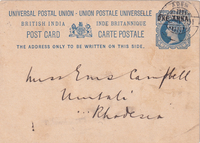 UNIVERSAL POSTAL UNION – UNION POSTALE UNIVERSELLE
BRITISH INDIA INDE BRITANNIQUE
POST CARD CARTE POSTALE
THE ADDRESS ONLY TO BE WRITTEN ON THIS SIDE.
Miss Campbell
Umtali
Rhodesia